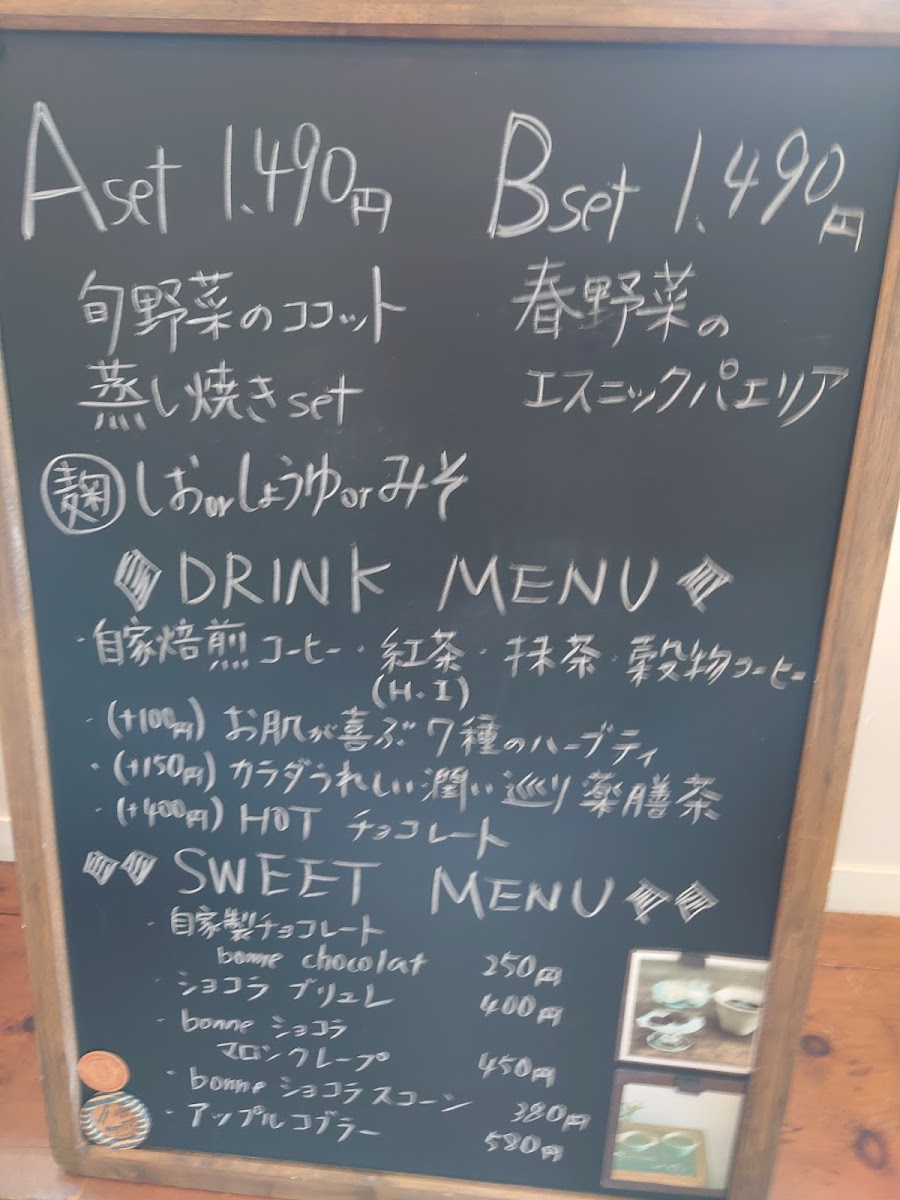 Aset 1.490円
旬野菜のココット
蒸し焼きset
麹 しおorしょうゆorみそ
Bset 1.490円
春野菜の
エスニックパエリア
DRINK MENU
・自家焙煎コーヒー・紅茶・抹茶・穀物コーヒー
(H・I)
・(+100円) お肌が喜ぶ7種のハーブティ
・(+150円) カラダうれしい潤い巡り薬膳茶
・(+400円) HOT チョコレート
SWEET MENU
・自家製チョコレート
bonne chocolat 250円
・ショコラ ブリュレ 400円
・bonne ショコラ
マロンクレープ 450円
・bonne ショコラスコーン 380円
・アップルコブラー 580円